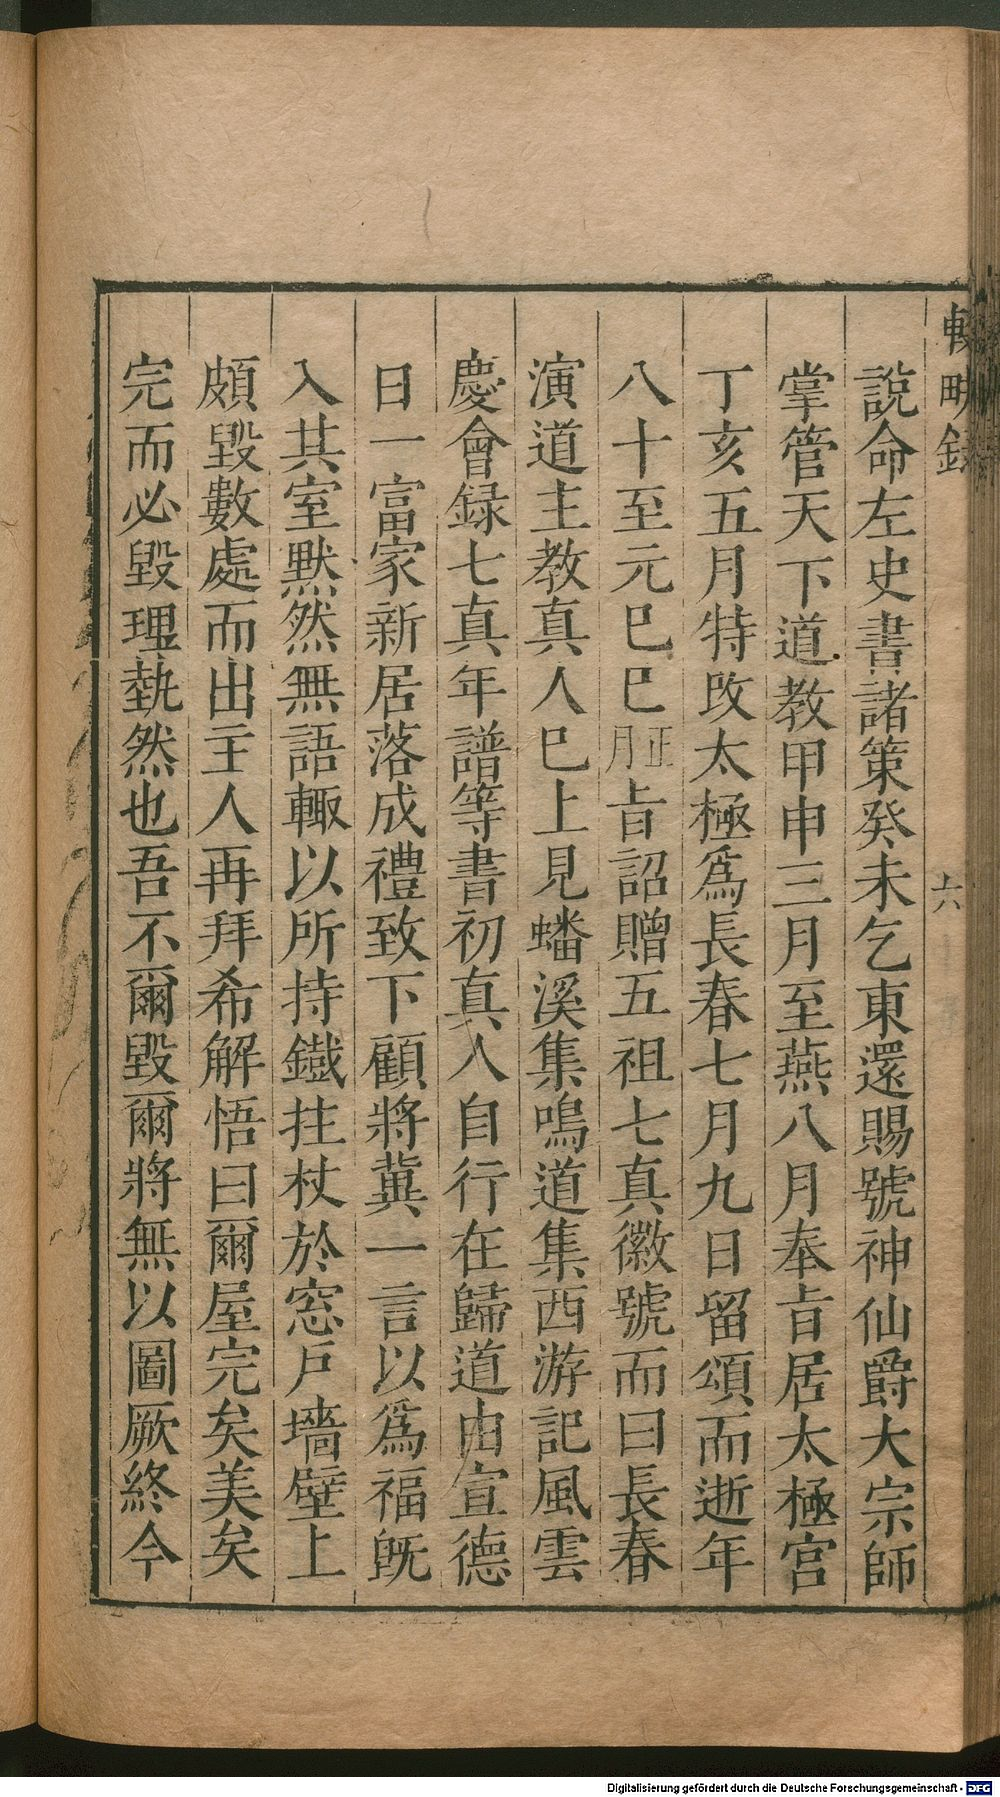 輟畊録
六
說命左史書諸策癸未乞東還賜號神仙爵大宗師
掌管天下道教甲申三月至燕八月奉旨居太極宮
丁亥五月特改太極爲長春七月九日留頌而逝年
八十至元巳巳正月旨詔贈五祖七真徽號而曰長春
演道主教真人巳上見蟠溪集鳴道集西游記風雲
慶會録七真年譜等書初真人自行在歸道由宣德
日一富家新居落成禮致下顧將冀一言以爲福旣
入其室默然無語輙以所持鐵拄杖於窓戶墻壁上
頗毀數處而出主人再拜希解悟曰爾屋完矣美矣
完而必毀理埶然也吾不爾毀爾將無以圖厥終今
Digitalisierung gefördert durch die Deutsche Forschungsgemeinschaft - DFG